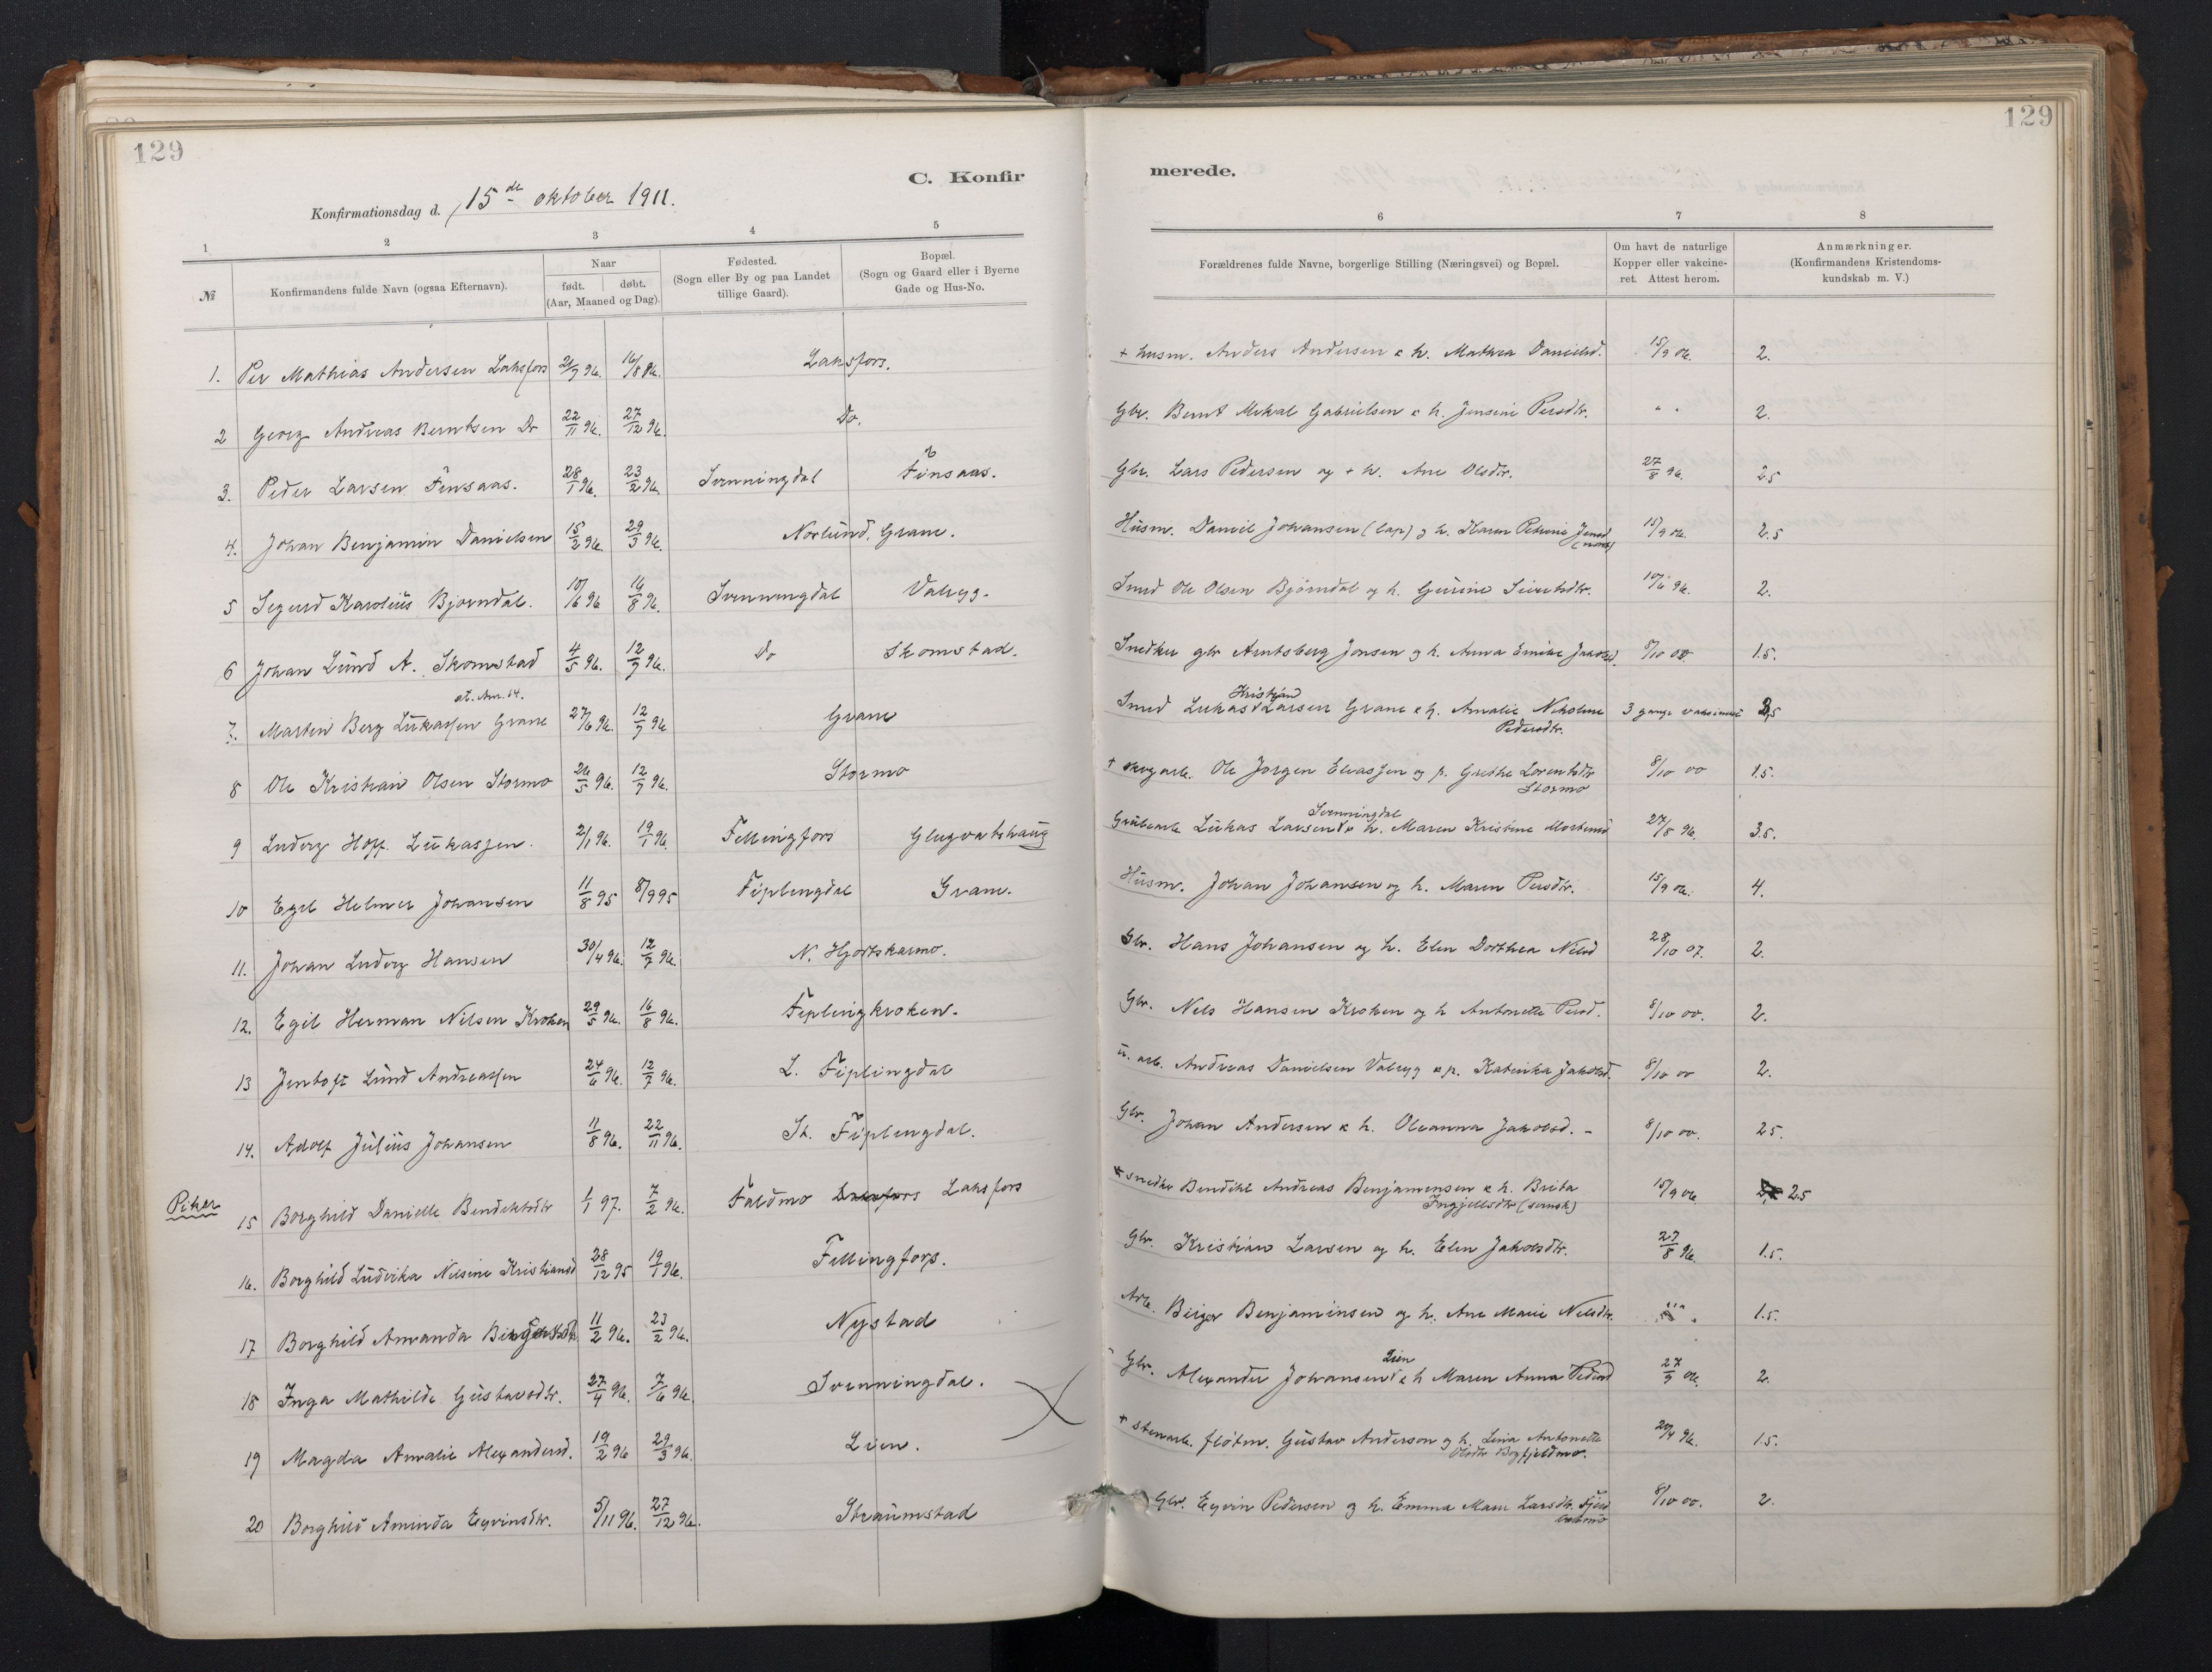 129
129
C. Konfir
merede.
Konfirmationsdag d. 15de oktober 1911.
1 2 3 4 5 6 7 8
№ Konfirmandens fulde Navn (ogsaa Efternavn). Naar født. døbt. (Aar, Maaned og Dag). Fødested. (Sogn eller By og paa Landet tillige Gaard). Bopæl. (Sogn og Gaard eller i Byerne Gade og Hus-No. Forældrenes fulde Navne, borgerlige Stilling (Næringsvei) og Bopæl. Om havt de naturlige Kopper eller vakcineret. Attest herom. Anmærkninger. (Konfirmandens Kristendomskundskab m. V.)
1. Per Mathias Andersen Laksfors 96. 16/8 96. Laksfors. + husm. Anders Andersen & h. Mathea Danielsd. 15/9 06. 2.
2 Georg Andreas Berntsen Do 22/11 96. 27/12 96. Do. Gbr. Bernt Mikal Gabrielsen & h. Jensine Persdtr. " " 2.
3. Peder Larsen Finsaas. 28/1 96. 23/2 96. Svenningdal Finsaas. Gbr. Lars Pedersen og + h. Ane Olsdtr. 27/8 96. 2.5
4. Johan Benjamin Danielsen 15/2 96. 29/3 96. Norlund, Grane. Husm. Daniel Johansen (lap) og h. Karen Petrine Jensd (norsk) 15/9 06. 2.5
5 Sigurd Karolius Bjørndal. 10/6 96 16/8 96. Svenningdal Valryg. Smed Ole Olsen Bjørndal og h. Gurine Sivertsdtr. 10/6 96. 2.
6 Johan Lund A. Skomstad 4/5 96. 12/7 96. Do Skomstad. Snedker gbr Arntsberg Jonsen og h. Anna Emilie Jakobsd. 8/10 00. 1.5.
7. Martin Berg Lukassen Grane 27/6 96. 12/7 96 Grane Smed Lukas Kristian Larsen Grane & h. Amalie Nikoline Pedersdtr. 3 gange vaksineret 2.5
8 Ole Kristian Olsen Stormo 26/5 96. 12/7 96. Stormo + skogarb. Ole Jørgen Eliassen og p. Grethe Lorentsdtr Stormo 8/10 00 1.5.
9 Ludvig Hoff Lukassen. 2/1 96. 19/1 96. Fellingfors Glugvatshaug Grubearb Lukas Larsen Svenningdal & h. Maren Kristine Mortensd 27/8 96. 3.5.
10 Egil Helmer Johansen 11/8 95 8/9 95 Fiplingdal Grane. Husm. Johan Johansen og h. Maren Persdtr. 15/9 06. 4.
11. Johan Ludvig Hansen 30/4 96. 12/7 96. N. Hjortskarmo. Gbr. Hans Johansen og h. Elen Dorthea Nilsd 28/10 07. 2.
12. Egil Herman Nilsen Kroken 29/5 96. 16/8 96. Fiplingkroken. Gbr. Nils Hansen Kroken og h Antonette Persd. 8/10 00. 2.
13 Jentoft Lund Andreassen 24/6 96. 12/7 96. L. Fiplingdal u. arb. Andreas Danielsen Valryg & p. Katinka Jakobsd. 8/10 00 2.
14. Adolf Julius Johansen 11/8 96. 22/11 96. St. Fiplingdal. Gbr. Johan Andersen & h. Oleanna Jakobsd. - 8/10 00. 2.5.
Piker 15 Borghild Danielle Bendiktsdtr 1/1 97. 7/2 96. Faldmo Laksfors + snedker Bendikt Andreas Benjaminsen & h. Brita Ingjellsdtr (svensk) 15/9 06 2.5
16. Borghild Ludvika Nilsine Kristiansd 28/12 95 19/1 96. Fellingfors. Gbr. Kristian Larsen og h. Elen Jakobsdtr. 27/8 96. 1.5.
17 Borghild Amanda Birgersdtr 11/2 96. 23/2 96. Nystad Arb. Birger Benjaminsen og h. Ane Marie Nilsdtr. 1.5.
18 Inga Mathilde Gustavsdtr. 27/4 96. 7/6 96. Svenningdal. Gbr. Alexander Johansen Lien & h Maren Anna Pedersd 27/9 06. 2.
19 Magda Amalie Alexandersd. 19/2 96 29/3 96. Lien. + stenarb. fløtm. Gustav Anderson og h. Lina Antonette Olsdtr Bogfjeldmo. 20/4 96. 1.5.
20 Borghild Aminda Eyvinsdtr. 5/11 96. 27/12 96. Straumstad Gbr. Eyvin Pedersen og h. Emma Marie Larsdtr. 8/10 00. 2.